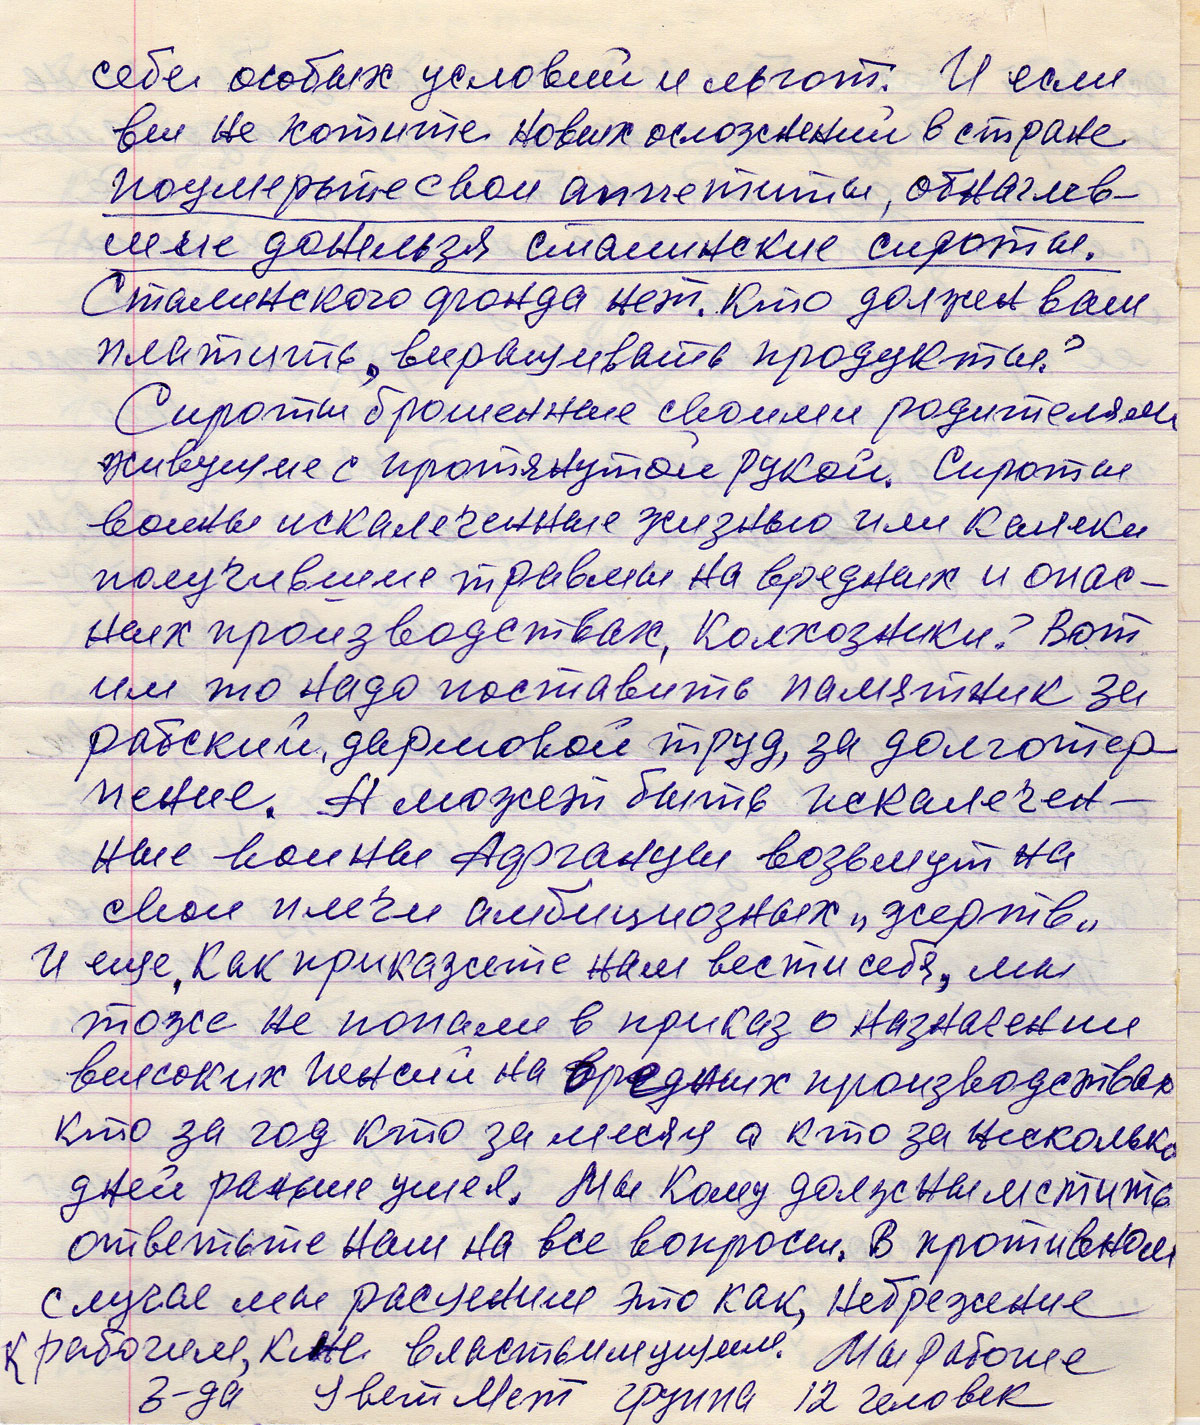 себе особых условий и льгот. И если
вы не хотите новых осложнений в стране
поумерьте свои аппетиты, обнаглев-
шие донельзя сталинские сироты.
Сталинского фонда нет. Кто должен вам
платить, выращивать продукты?
Сироты брошенные своими родителями
живущие с протянутой рукой. Сироты
войны искалеченные жизнью или калеки
получившие травмы на вредных и опас-
ных производствах, Колхозники? Вот
им то надо поставить памятник за
рабский, дармовой труд, за долготер-
пение. А может быть искалечен-
ные войны Афганцы возьмут на
свои плечи амбициозных „жертв„
И еще, Как прикажете нам вести себя, мы
тоже не попали в приказ о назначении
высоких пенсий на вредных производствах
кто за год кто за месяц а кто за несколько
дней раньше ушел. Мы кому должны мстить
ответьте нам на все вопросы. В противном
случае мы расценим это как, небрежение
к рабочим, к не властьимущим. Мы рабочие
З-да ЦветМет група 12 человек